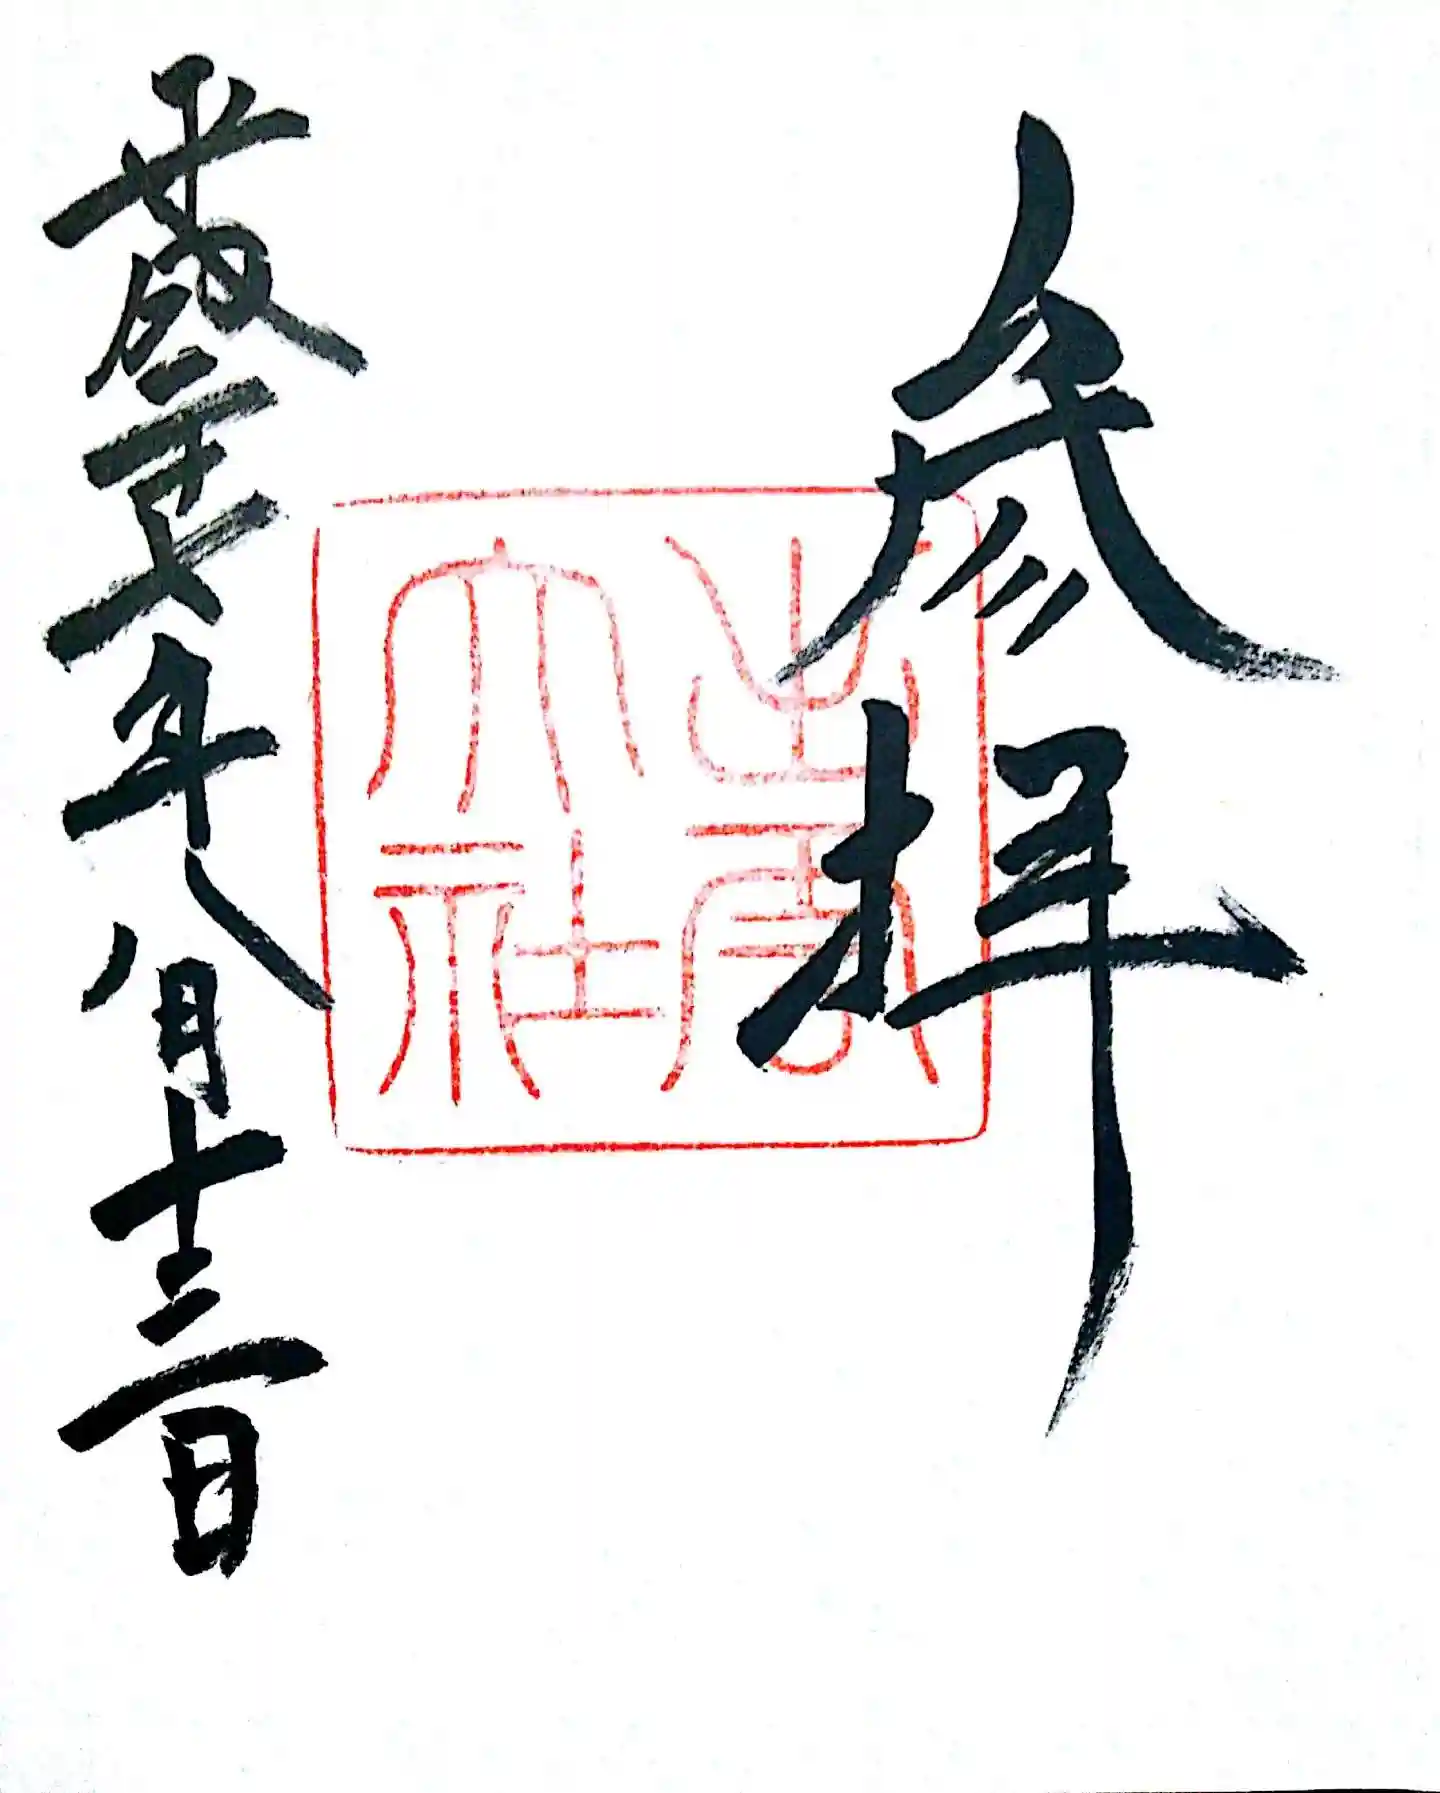 参拝
出雲
大社
平成二十七年八月十三日